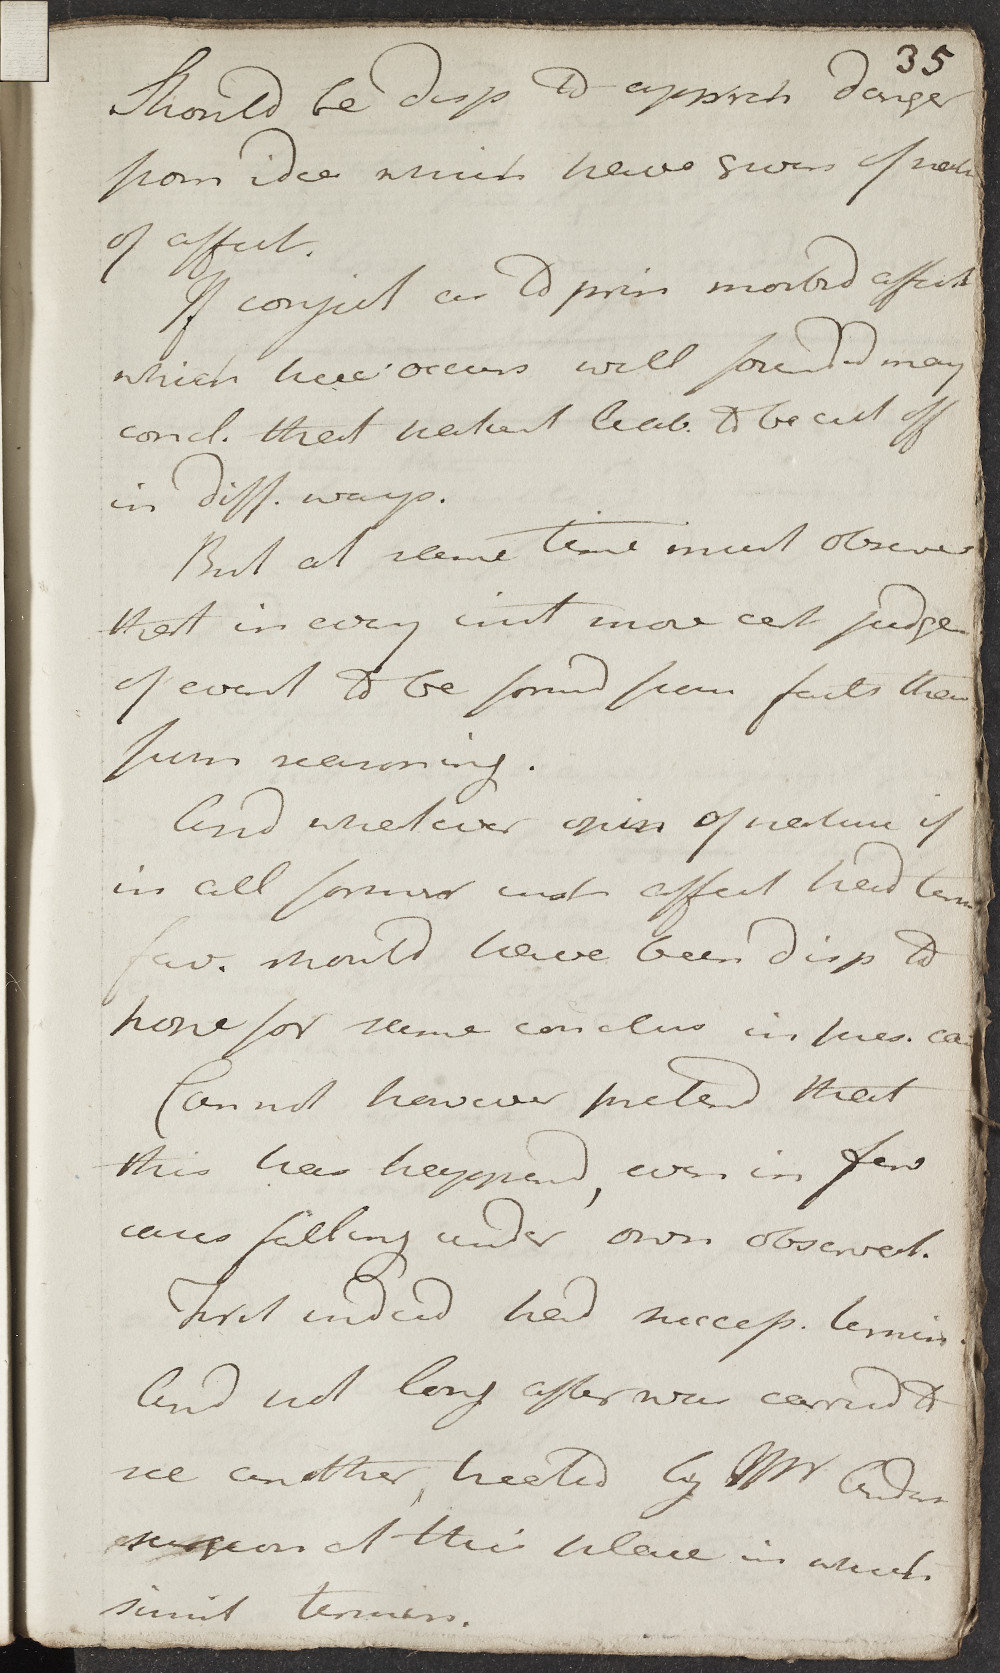 35
Should be disp to appreh danger
from idea which have given of natu
of affect.
If conject as to prin morbid affect
which here occurs well founded may
concl. that patient liab. to be cut off
in diff. ways.
But at same time must observe
that in every inst more cert judge
of event to be formd from facts than
from reasoning.
And whatever opin of nature if
in all former inst affect had term
fav. should have been disp to
hope for same conclus in pres. ca
Cannot however pretend that
this has happend, even in few
cases falling under own observat.
First indeed had success. termin.
And not long after was carried to
see another, treated by Mr Anders
surgeon at this place in which
simil termin.